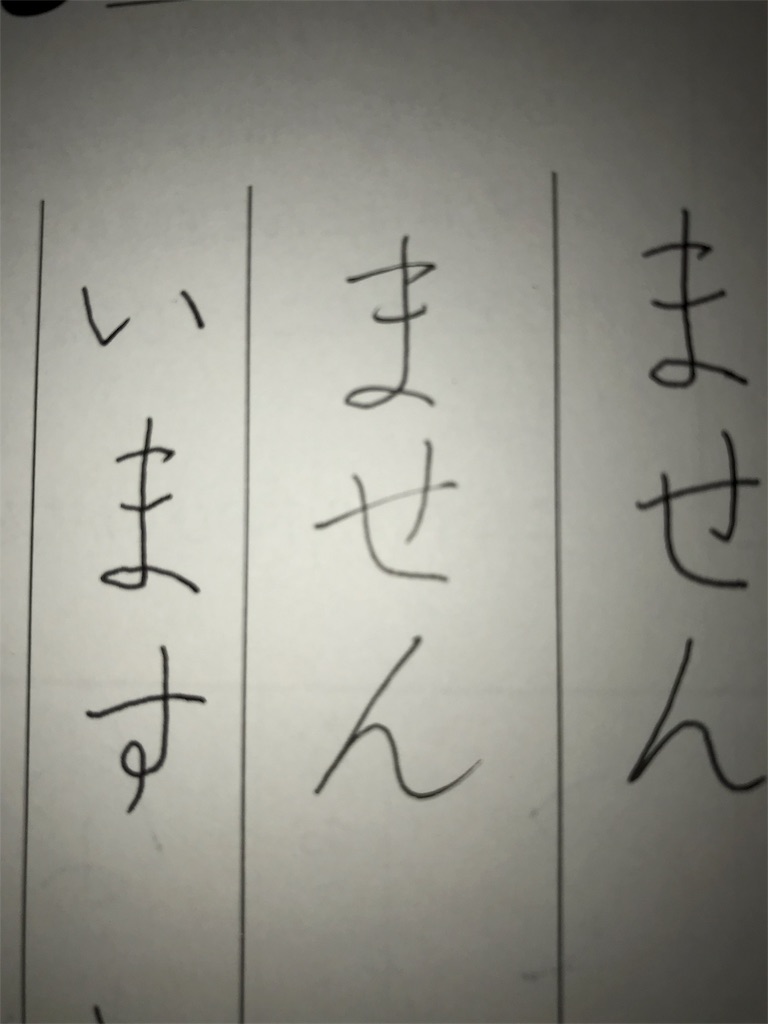 ません
ません
います